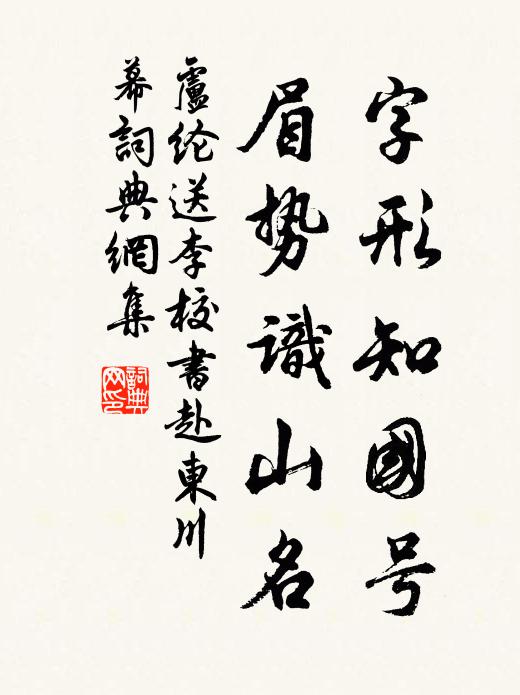 字形知國号
眉势識山名
盧纶送李校書赴東川
幕詞典網集
詞典网印